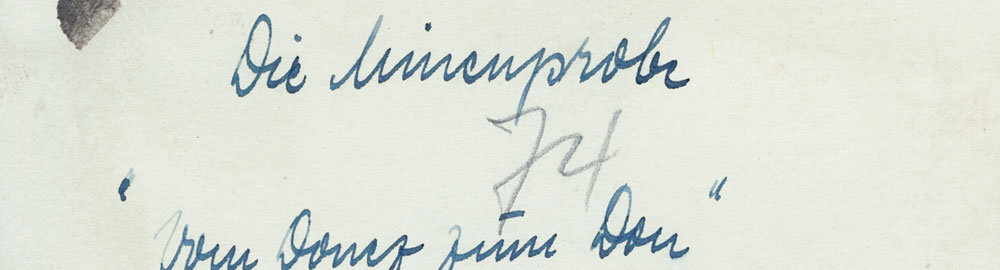 Die Minenprobe
74
"Vom Donez zum Don"